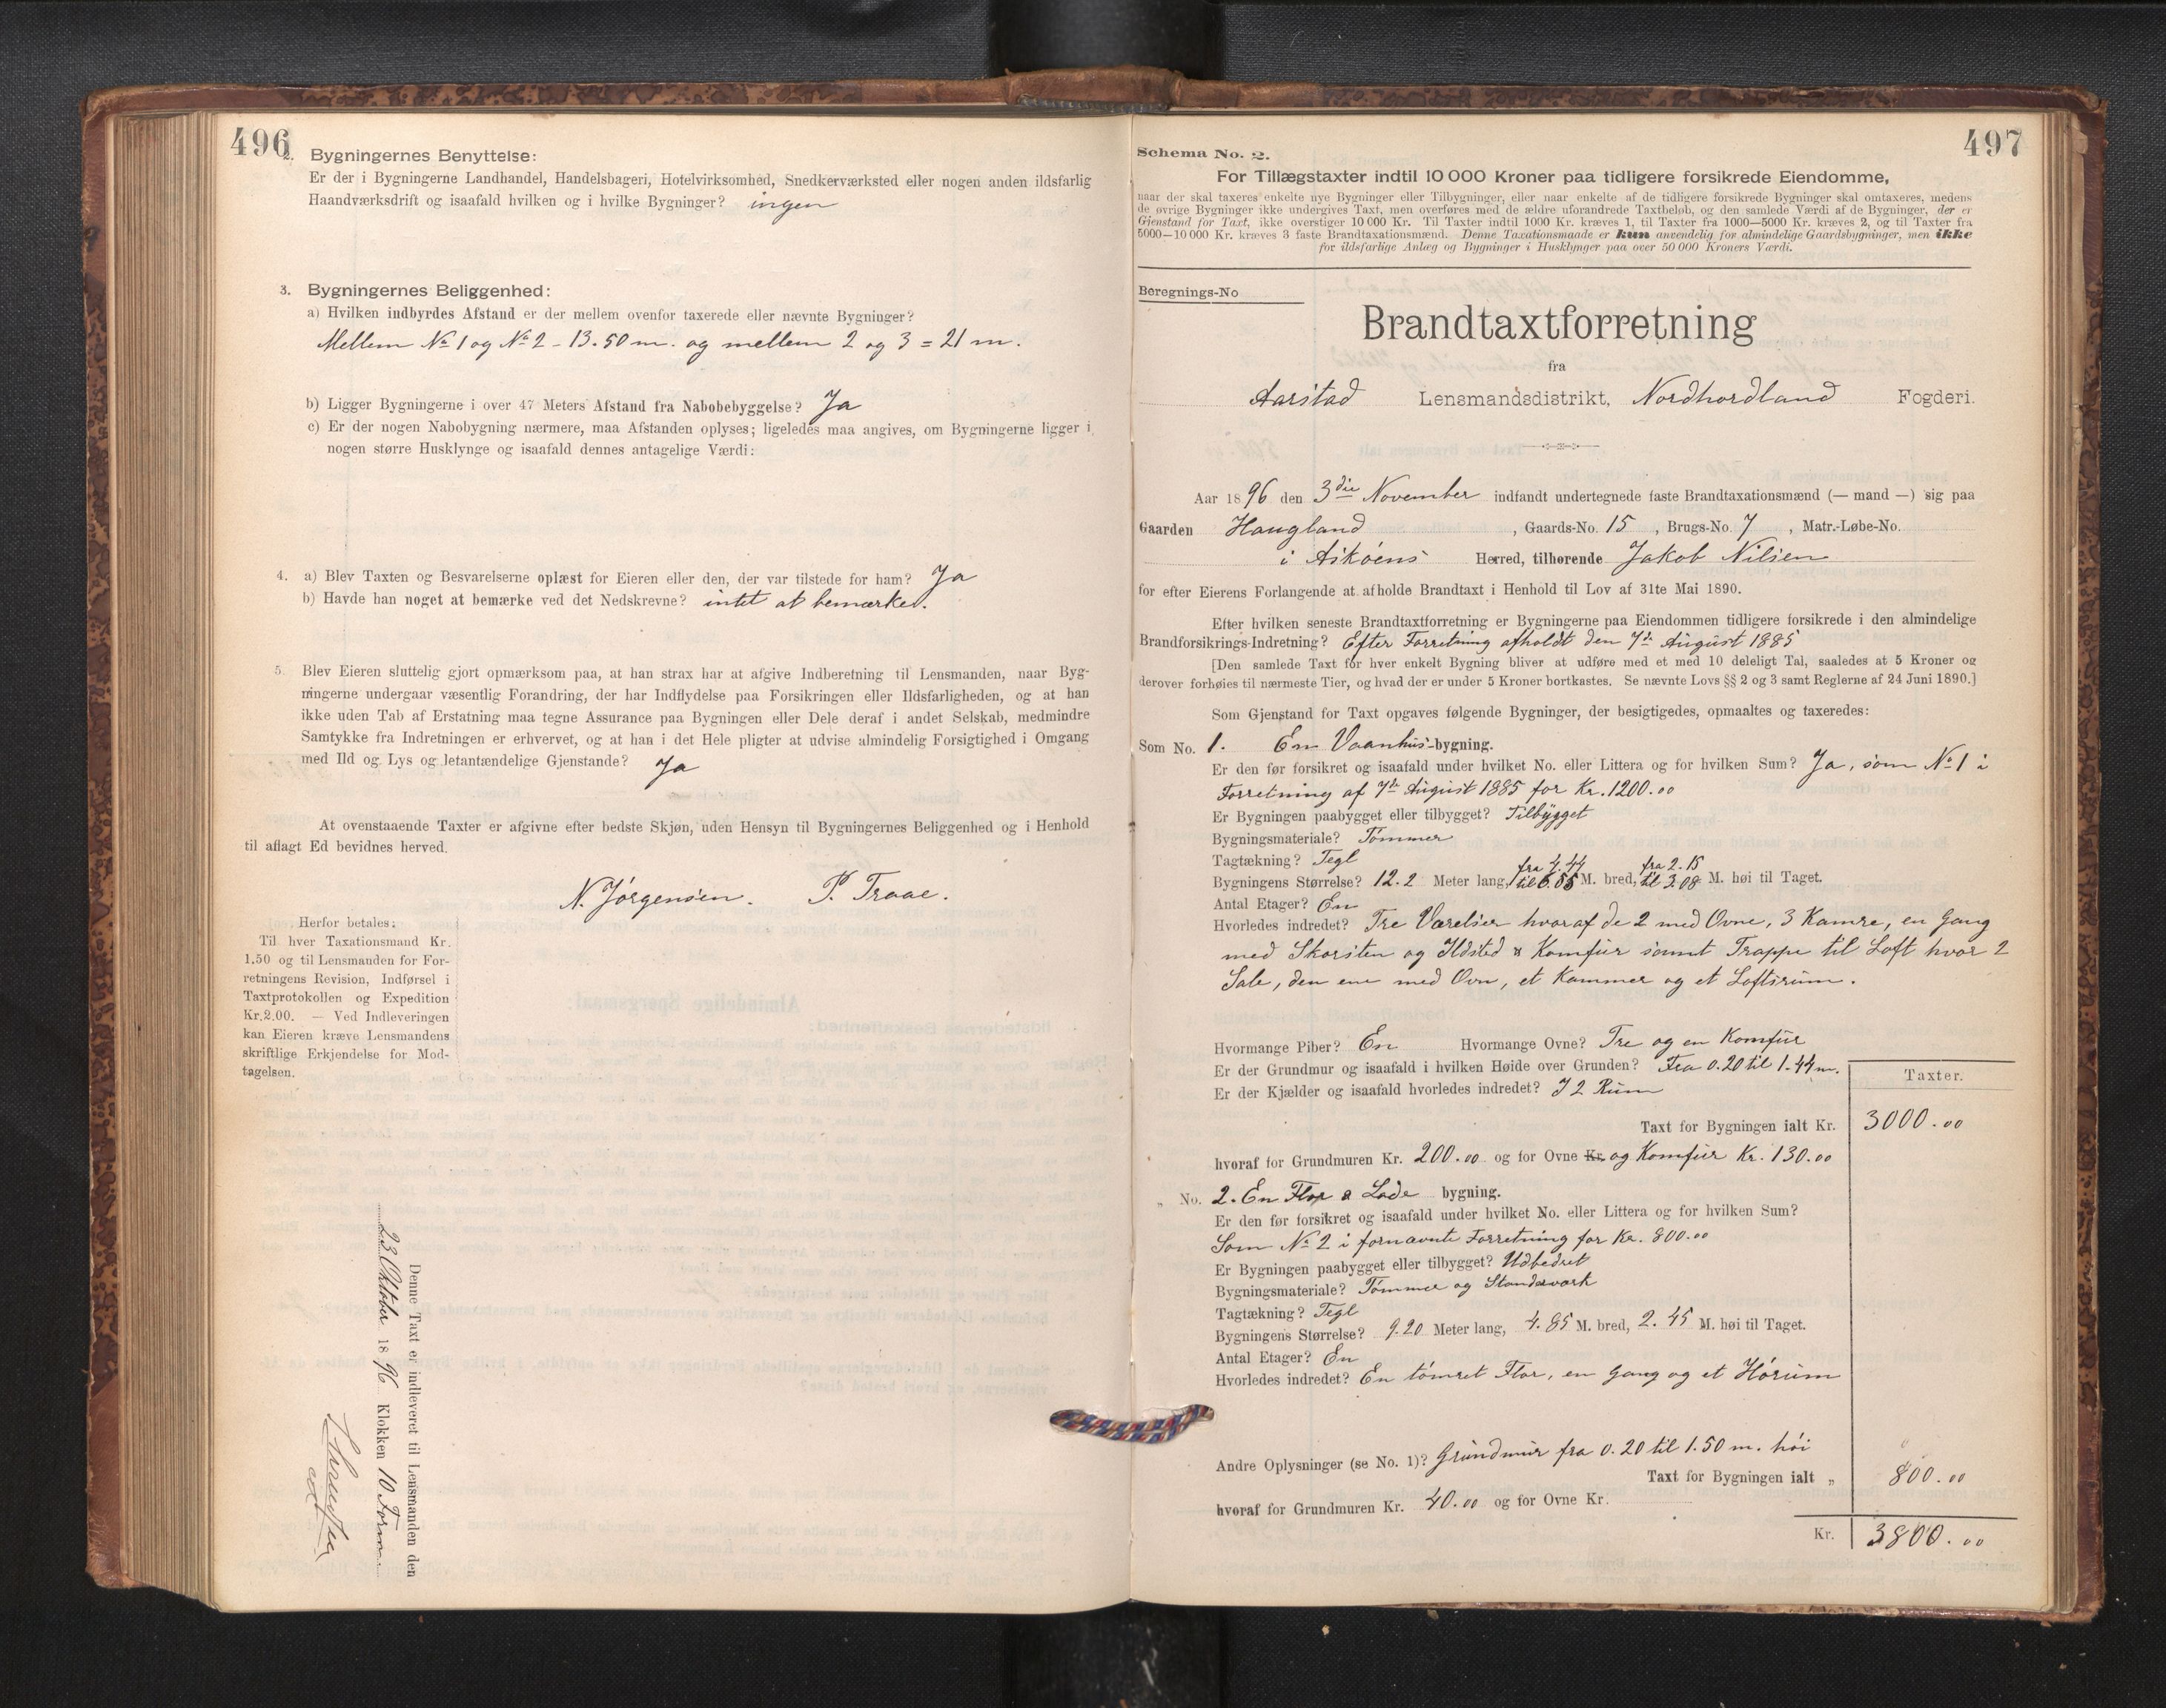 496
2. Bygningernes Benyttelse:
Er der i Bygningerne Landhandel, Handelsbageri, Hotelvirksomhed, Snedkerværksted eller nogen anden ildsfarlig
Haandværksdrift og isaafald hvilken og i hvilke Bygninger? ingen
3. Bygningernes Beliggenhed:
a) Hvilken indbyrdes Afstand er der mellem ovenfor taxerede eller nævnte Bygninger?
Mellem No 1 og No 2 - 13.50 m. og mellem 2 og 3 = 21 m.
b) Ligger Bygningerne i over 47 Meters Afstand fra Nabobebyggelse? Ja
c) Er der nogen Nabobygning nærmere, maa Afstanden oplyses; ligeledes maa angives, om Bygningerne ligger i
nogen større Husklynge og isaafald dennes antagelige Værdi:
4. a) Blev Taxten og Besvarelserne oplæst for Eieren eller den, der var tilstede for ham? Ja
b) Havde han noget at bemærke ved det Nedskrevne? intet at bemærke.
5. Blev Eieren sluttelig gjort opmærksom paa, at han strax har at afgive Indberetning til Lensmanden, naar Byg-
ningerne undergaar væsentlig Forandring, der har Indflydelse paa Forsikringen eller Ildsfarligheden, og at han
ikke uden Tab af Erstatning maa tegne Assurance paa Bygningen eller Dele deraf i andet Selskab, medmindre
Samtykke fra Indretningen er erhvervet, og at han i det Hele pligter at udvise almindelig Forsigtighed i Omgang
med Ild og Lys og letantændelige Gjenstande? Ja
At ovenstaaende Taxter er afgivne efter bedste Skjøn, uden Hensyn til Bygningernes Beliggenhed og i Henhold
til aflagt Ed bevidnes herved.
N. Jörgensen. P. Traae.
Herfor betales:
Til hver Taxationsmand Kr.
1.50 og til Lensmanden for For-
retningens Revision, Indførsel i
Taxtprotokollen og Expedition
Kr. 2.00. — Ved Indleveringen
kan Eieren kræve Lensmandens
skriftlige Erkjendelse for Mod-
tagelsen.
Denne Taxt er indleveret til Lensmanden den
23 Oktober 1896 Klokken 10 Form
497
Schema No. 2.
For Tillægstaxter indtil 10 000 Kroner paa tidligere forsikrede Eiendomme,
naar der skal taxeres enkelte nye Bygninger eller Tilbygninger, eller naar enkelte af de tidligere forsikrede Bygninger skal omtaxeres, medens
de øvrige Bygninger ikke undergives Taxt, men overføres med de ældre uforandrede Taxtbeløb, og den samlede Værdi af de Bygninger, der er
Gjenstand for Taxt, ikke overstiger 10 000 Kr. Til Taxter indtil 1000 Kr. kræves 1, til Taxter fra 1000—5000 Kr. kræves 2, og til Taxter fra
5000—10 000 Kr. kræves 3 faste Brandtaxationsmænd. Denne Taxationsmaade er kun anvendelig for almindelige Gaardsbygninger, men ikke
for ildsfarlige Anlæg og Bygninger i Husklynger paa over 50 000 Kroners Værdi.
Beregnings-No
Brandtaxtforretning
fra
Aarstad Lensmandsdistrikt, Nordhordland Fogderi.
Aar 1896 den 3die November indfandt undertegnede faste Brandtaxationsmænd (— mand —) sig paa
Gaarden Haugland, Gaards-No. 15, Brugs-No. 7, Matr.-Løbe-No.
i Askøens Herred, tilhørende Jakob Nilsen
for efter Eierens Forlangende at afholde Brandtaxt i Henhold til Lov af 31te Mai 1890.
Efter hvilken seneste Brandtaxtforretning er Bygningerne paa Eiendommen tidligere forsikrede i den almindelige
Brandforsikrings-Indretning? Efter Forretning afholdt den 7de August 1885
[Den samlede Taxt for hver enkelt Bygning bliver at udføre med et med 10 deleligt Tal, saaledes at 5 Kroner og
derover forhøies til nærmeste Tier, og hvad der er under 5 Kroner bortkastes. Se nævnte Lovs §§ 2 og 3 samt Reglerne af 24 Juni 1890.]
Som Gjenstand for Taxt opgaves følgende Bygninger, der besigtigedes, opmaaltes og taxeredes:
Som No. 1. En Vaanhus-bygning.
Er den før forsikret og isaafald under hvilket No. eller Littera og for hvilken Sum? Ja, som No 1 i
Forretning af 7de August 1885 for Kr. 1200.00
Er Bygningen paabygget eller tilbygget? Tilbygget
Bygningsmateriale? Tömmer
Tagtækning? Tegl
Bygningens Størrelse? 12.2 Meter lang, fra 4.44 til 6.55 M. bred, fra 2.15 til 3.08 M. høi til Taget.
Antal Etager? En
Hvorledes indredet? Tre Værelser hvoraf de 2 med Ovne, 3 Kamre, en Gang
med Skorsten og Ildsted & Komfur samt Trappe til Loft hvor 2
Sale, den ene med Ovn, et Kammer og et Loftsrum.
Hvormange Piber? En Hvormange Ovne? Tre og en Komfur
Er der Grundmur og isaafald i hvilken Høide over Grunden? Fra 0.20 til 1.44 m.
Er der Kjælder og isaafald hvorledes indredet? I 2 Rum
Taxter.
Taxt for Bygningen ialt Kr. 3000.00
hvoraf for Grundmuren Kr. 200.00 og for Ovne Kr. og Komfur Kr. 130.00
„ No. 2. En Flor & Lade bygning.
Er den før forsikret og isaafald under hvilket No. eller Littera og for hvilken Sum?
Som No 2 i fornævnte Forretning for Kr. 800.00
Er Bygningen paabygget eller tilbygget? Udbedret
Bygningsmateriale? Tömmer og Standerværk
Tagtækning? Tegl
Bygningens Størrelse? 9.20 Meter lang, 4.85 M. bred, 2.45 M. høi til Taget.
Antal Etager? En
Hvorledes indredet? En tömret Flor, en Gang og et Hörum
Andre Oplysninger (se No. 1)? Grundmur fra 0.20 til 1.50 m. høi
Taxt for Bygningen ialt „ 800.00
hvoraf for Grundmuren Kr. 40.00 og for Ovne Kr.
Kr. 3800.00